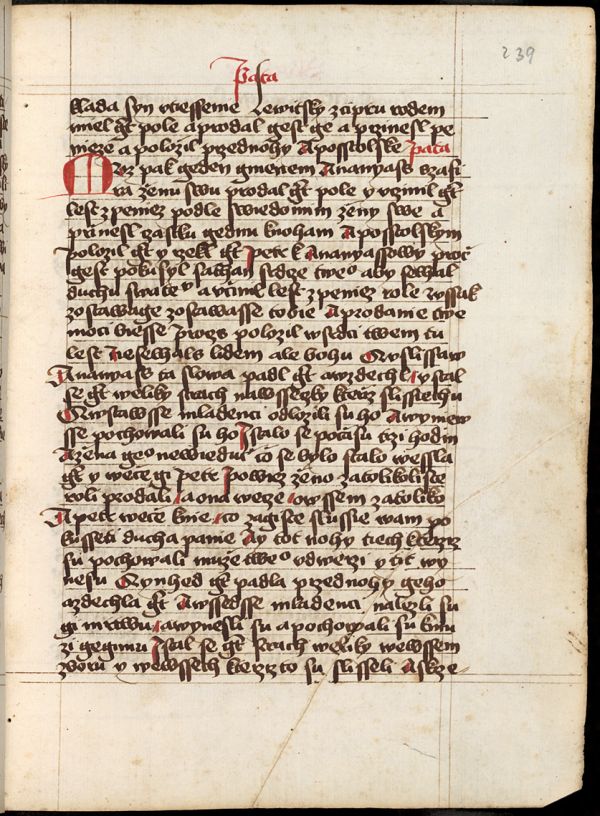 239
Pata
klada syn vtiesseme Lewitsky zcipru rodem
miel gt pole a prodal gest ge a przinesl pe
nieze a polozil przednohy Aposstolske pata
Muz pak geden gmenem Ananyass vzafi
ra zenu swu prodal gt pole y vczinil gt
lest zpeniez podle swiedomim zeny swe a
przinesl czastku gednu knoham Aposstolskym
polozil gt y rzekl gt Petr k Ananyassowy procz
gest pokusyl sathan srdcze tweo aby selhal
duchu swate v a vczinil lest zpeniez role wssak
zostawage zostawasse tobie A prodanie twe
moci biesse Proczs polozil wsrdci twem tu
lest Neselhals lidem ale bohu Vslissaw
Ananyass ta slowa padl gt a vzdechl y stal
se gt weliky strach nawsseczky kterziz slissiechu
wstawsse mladenci odlozili su ho A wyniew
sse pochowali su ho Stalo se poczasu trzi hodin
A zena geo newieduc co se bylo stalo wessla
gt y wece gi Petr Powiez zeno zatolikoliste
roli prodali a ona wece owssem zatoliko
A petr wece knie co zagiste slussie wam po
kusseti ducha panie Ay tot nohy tiech kterziz
su pochowali muze tweo v dwerzi y tit wy
nesu ynhed gt padla przednohy geho
a zdechla gt A wssedsse mladenci nalezli su
gi mrtwu a wynesli su a pochowali su kmu
zi gegimu Stal se gt strach weliky wewssem
zboru y wewssech kterziz to su slisseli A skrze